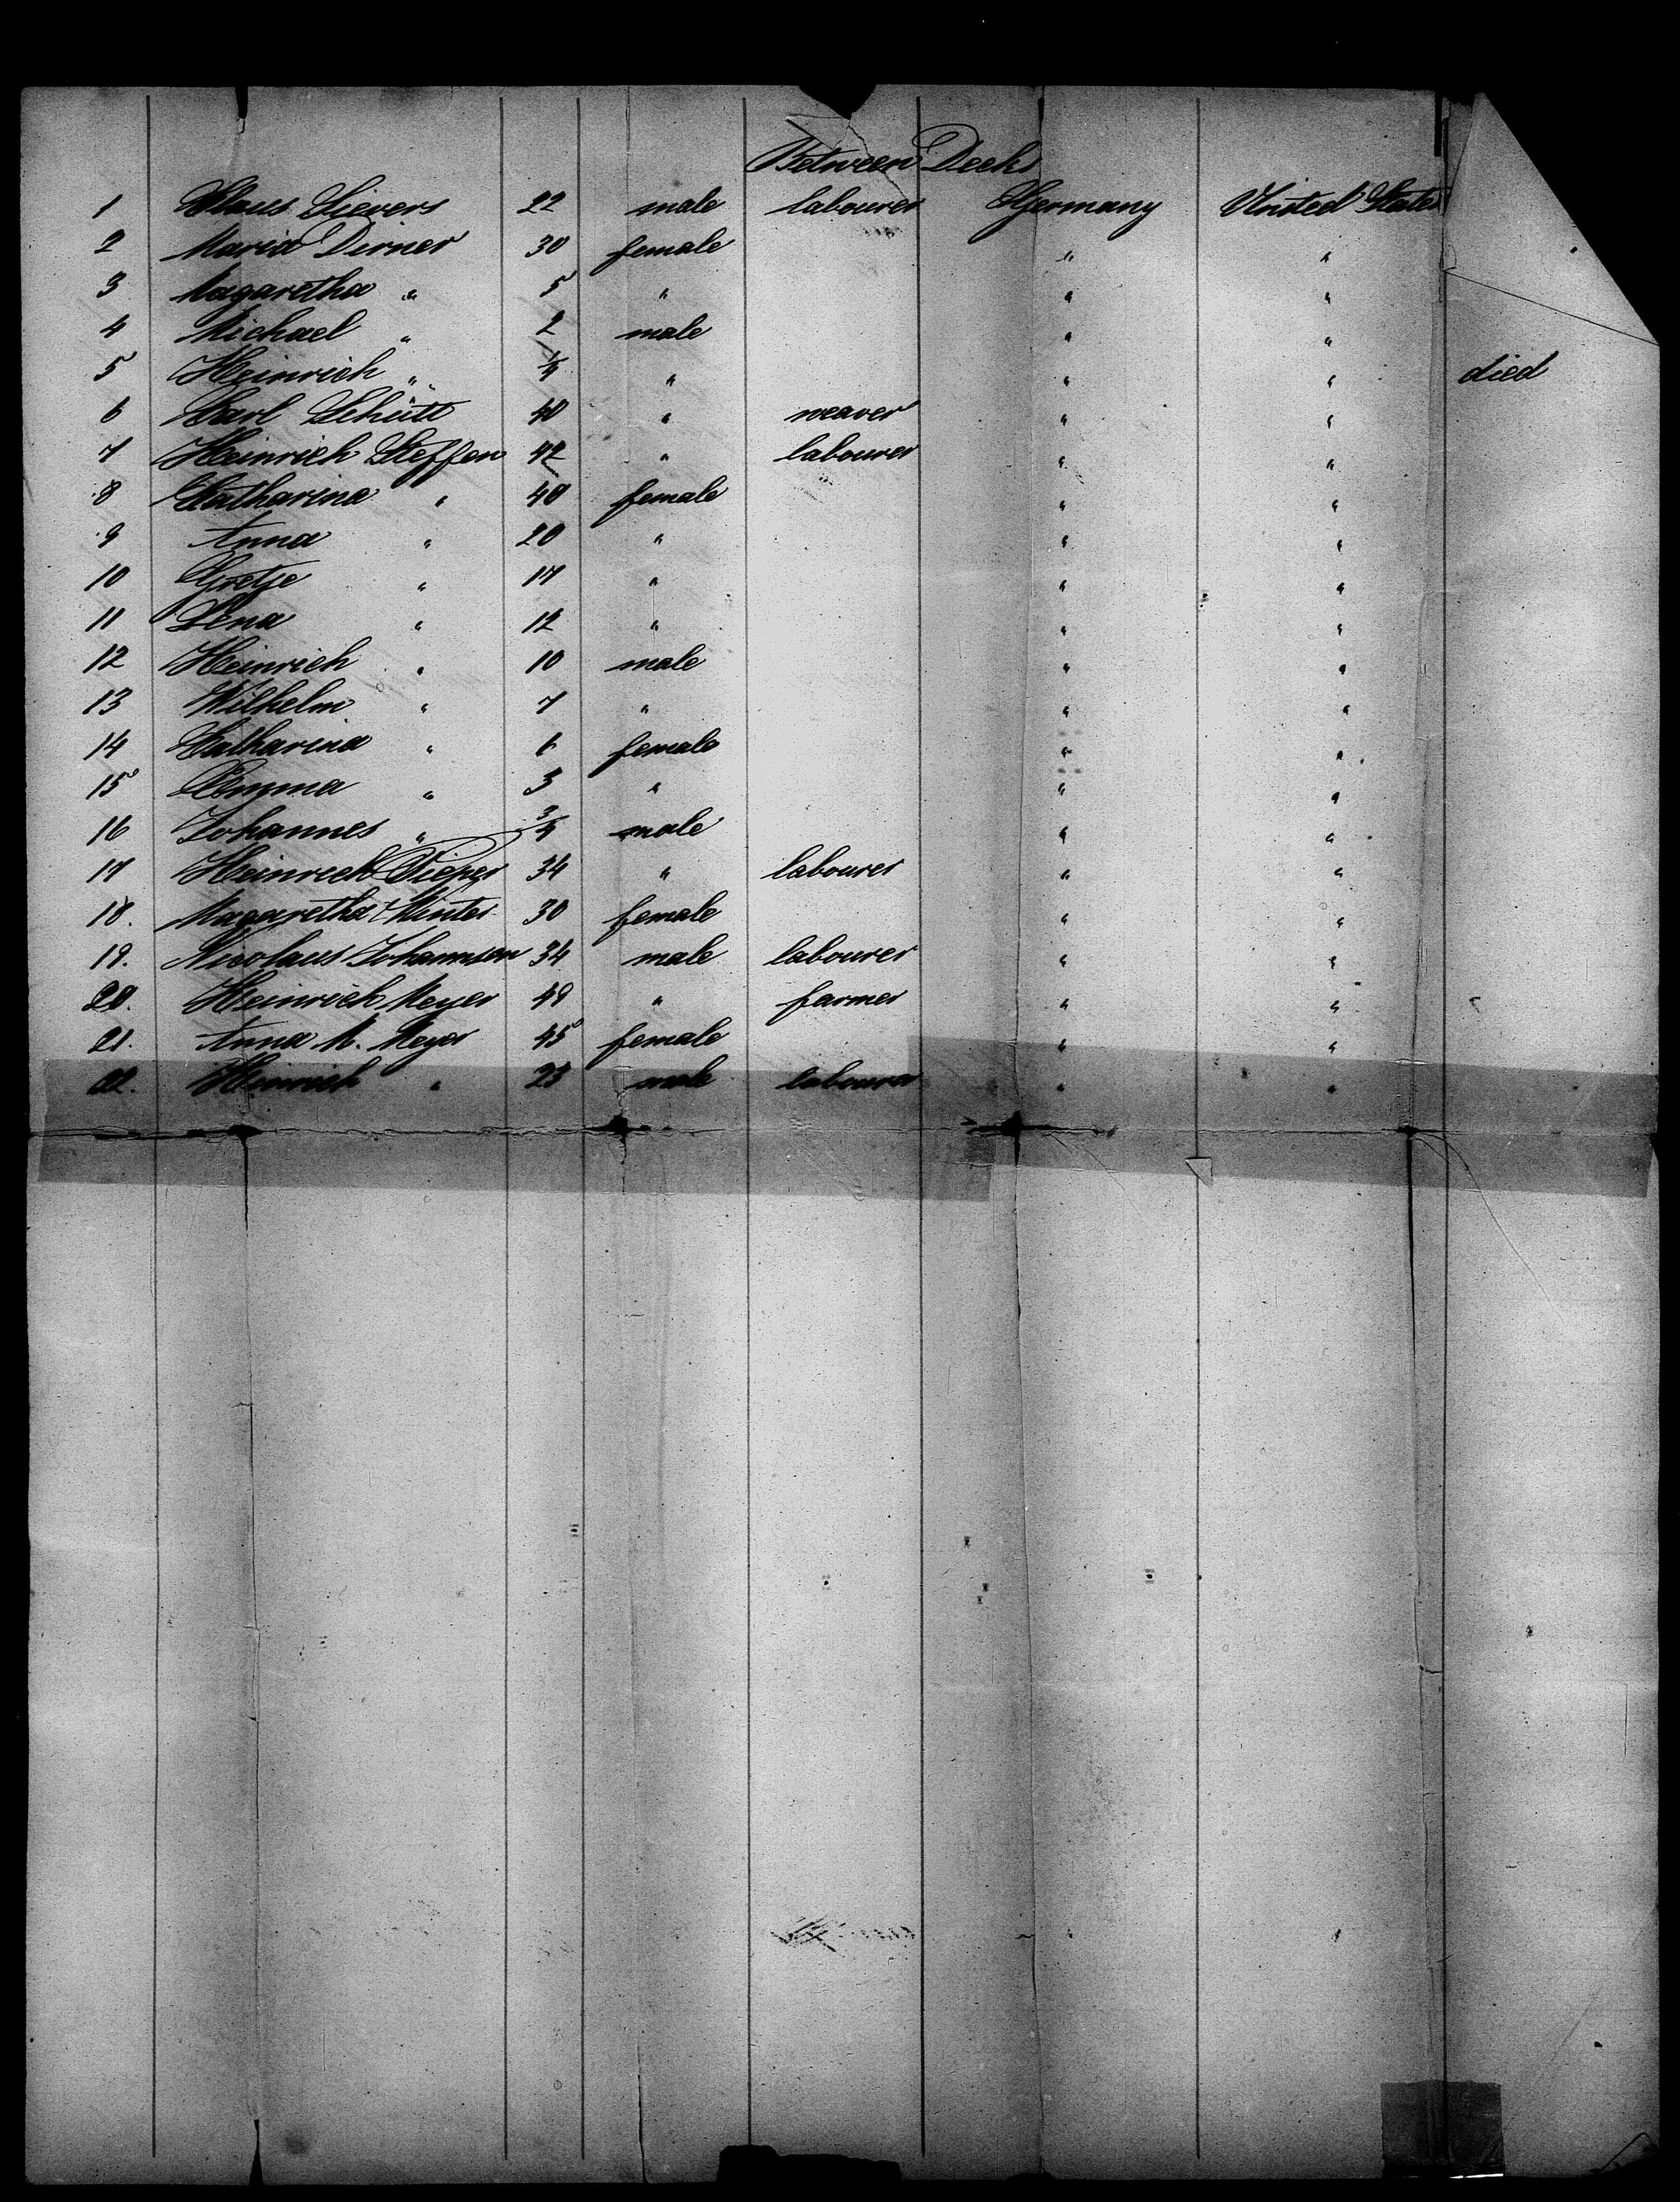 Between Decks
1 Claus Sievers 22 male labourer Germany United States
2 Maria Dirner 30 female " "
3 Magaretha " 5 " " "
4 Michael " 2 male " "
5 Heinrich " 1/4 " " " died
6 Carl Schütt 40 " weaver " "
7 Heinrich Steffen 42 " labourer " "
8 Catharina " 40 female " "
9 Anna " 20 " " "
10 Gretje " 17 " " "
11 Lena " 12 " " "
12 Heinrich " 10 male " "
13 Wilhelm " 7 " " "
14 Catharina " 6 female " "
15 Emma " 3 " " "
16 Johannes " 3/4 male " "
17 Heinrich Pieper 34 " labourer " "
18. Magaretha Winter 30 female " "
19. Nicolaus Johannsen 34 male labourer " "
20. Heinrich Meyer 49 " farmer " "
21. Anna M. Meyer 45 female " "
22. Heinrich " 23 male labourer " "